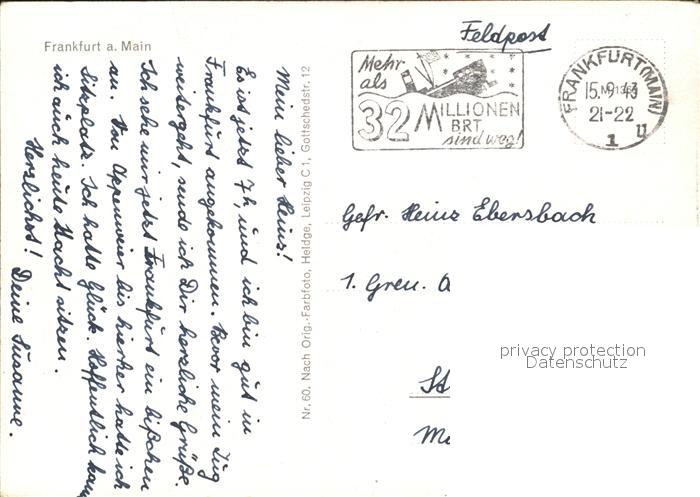 Frankfurt a. Main
Mein lieber Heinz!
Es ist jetzt 7h, und ich bin gut in
Frankfurt angekommen. Bevor mein Zug
weitergeht, sende ich Dir herzliche Grüße.
Ich sehe mir jetzt Frankfurt ein bißchen
an. Von Appenweier bis hierher hatte ich
Sitzplatz. Ich hatte Glück. Hoffentlich kann
ich auch heute Nacht sitzen.
Herzlichst! Deine Susanne.
Nr. 60. Nach Orig.-Farbfoto, Heldge, Leipzig C 1, Gottschedstr. 12
Feldpost
Mehr
als
32 MILLIONEN
BRT
sind weg!
FRANKFURT (MAIN)
15.9.43
21-22
1 u
Gefr. Heinz Ebersbach
1. Gren.
St
privacy protection
Datenschutz